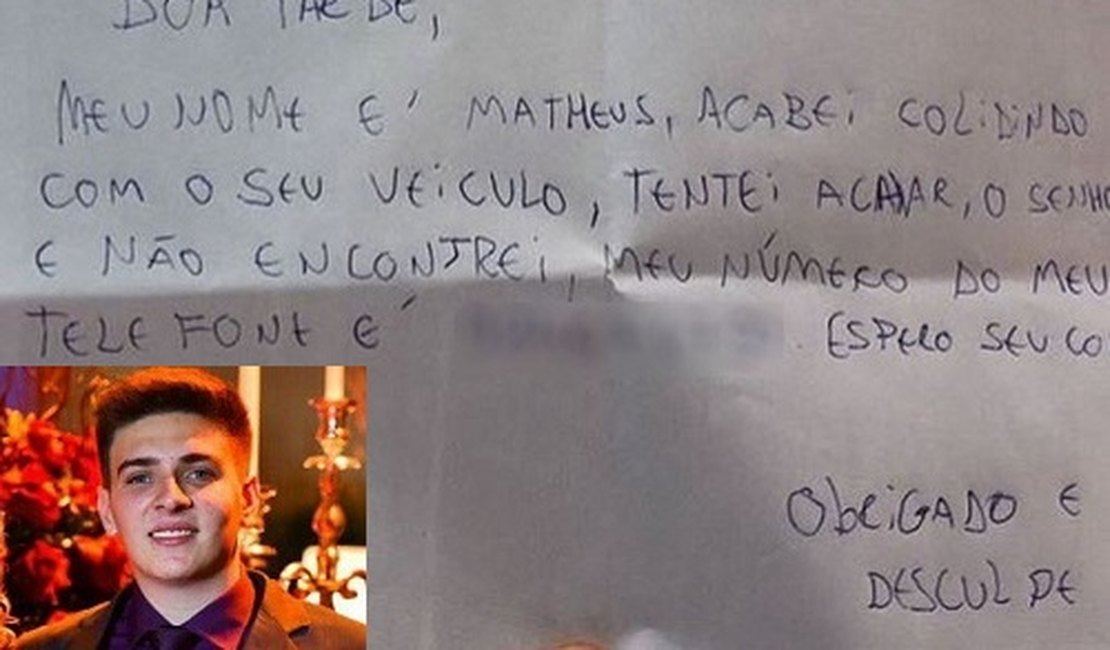 BOA TARDE,
MEU NOME E' MATHEUS, ACABEI COLIDINDO
COM O SEU VEICULO, TENTEI ACHAR, O SENHO
E NÃO ENCONTREI, MEU NÚMERO DO MEU
TELEFONE E' ESPERO SEU CO
ObRiGADO E
DESCULPE